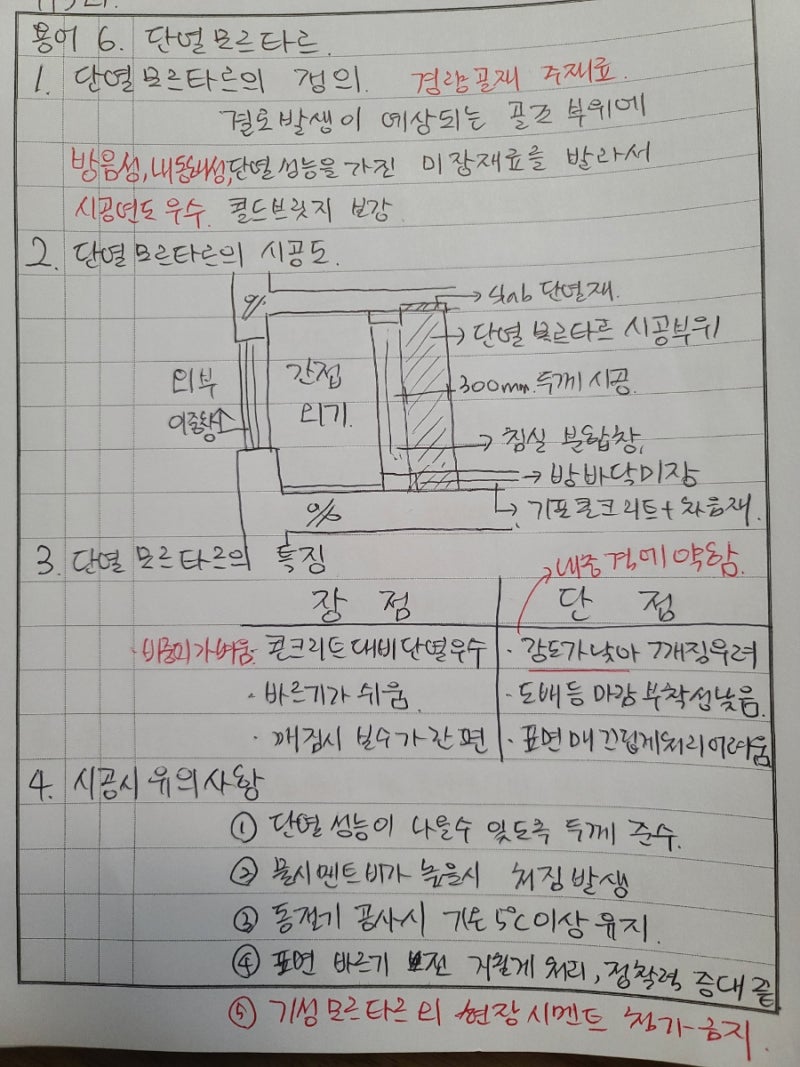 용어 6. 단열모르타르.
1. 단열모르타르의 정의. 경량골재 주재료.
결로발생이 예상되는 골조 부위에
방음성, 내동해성, 단열성능을 가진 미장재료를 발라서
시공연도 우수. 콜드브릿지 보강.
2. 단열모르타르의 시공도.
slab 단열재.
단열모르타르 시공부위
외부 간접 300mm 두께 시공.
이중창 외기
침실 분합창,
방바닥미장
기포콘크리트+차음재.
3. 단열모르타르의 특징
내충격에 약함.
장 점 단 점
· 비중이 가벼움. 콘크리트 대비 단열우수 · 강도가 낮아 깨짐우려
· 바르기가 쉬움. · 도배등 마감 부착성낮음.
· 깨짐시 보수가 간편 · 표면 매끈럽게 처리어려움
4. 시공시 유의사항
① 단열성능이 나올수 있도록 두께 준수.
② 물시멘트비가 높을시 처짐발생
③ 동절기 공사시 기온 5℃이상 유지.
④ 표면 바르기 전 거칠게 처리, 정착력 증대 끝
⑤ 기성모르타르의 현장시멘트 첨가금지.